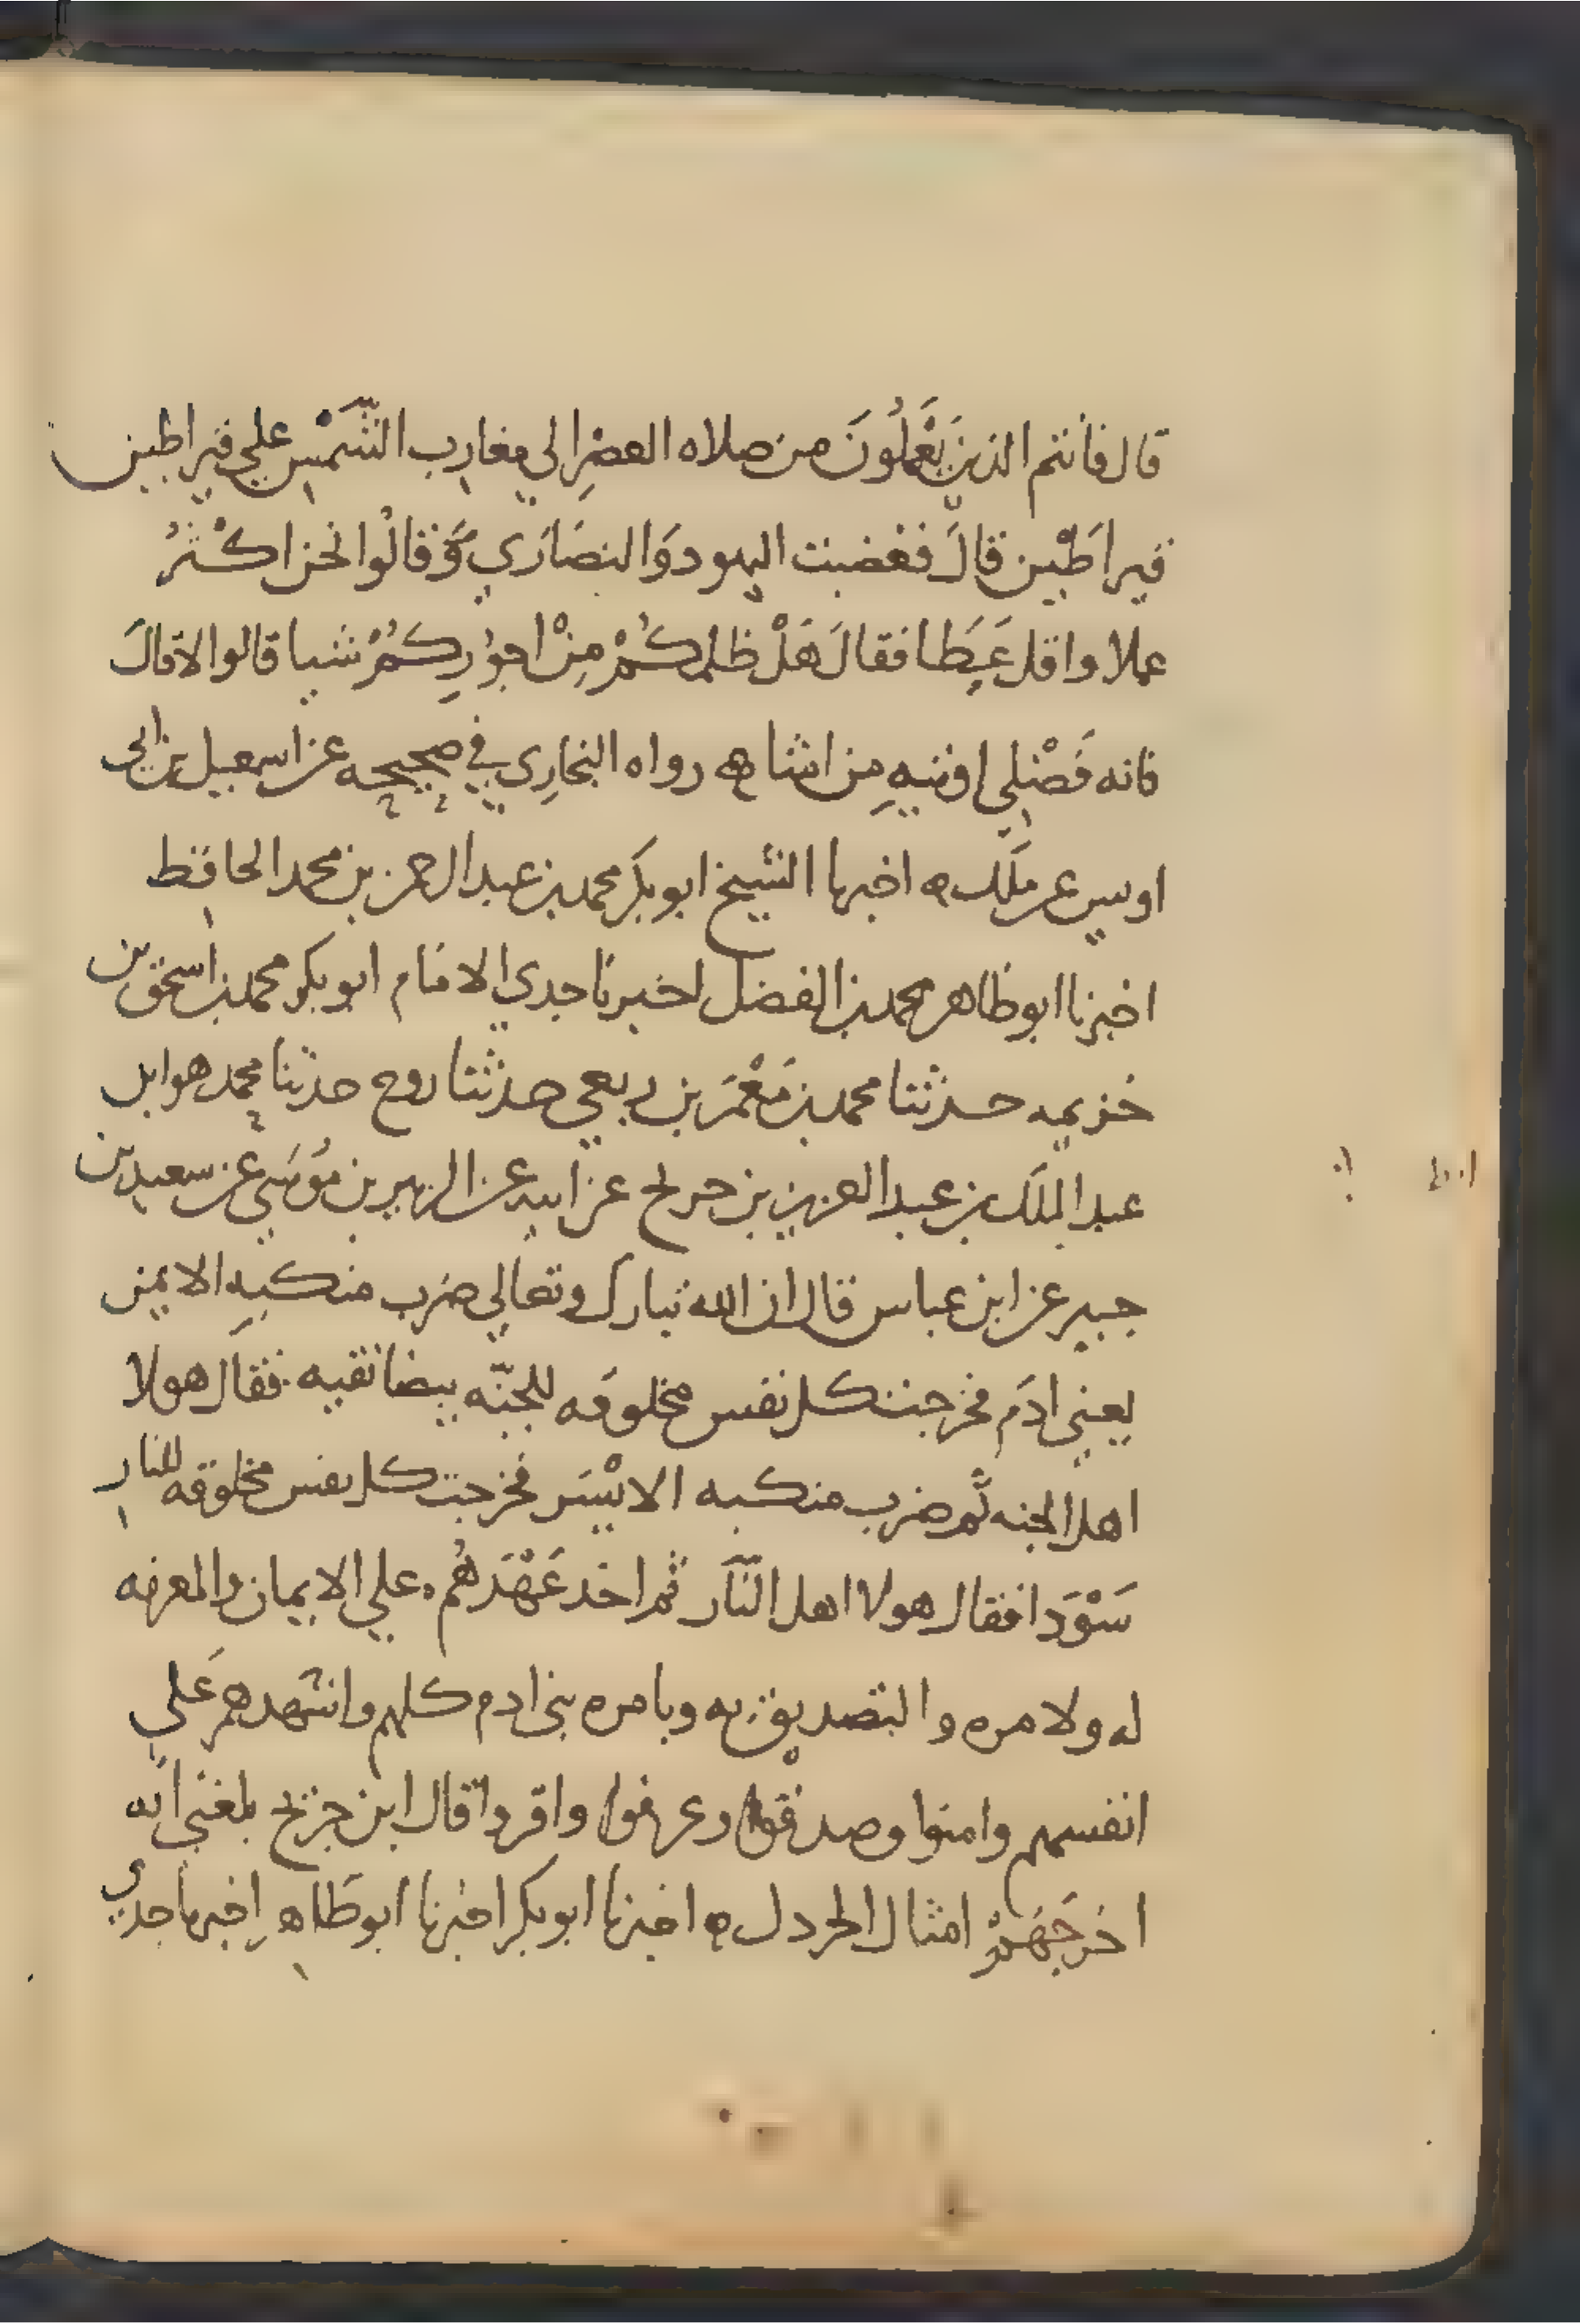 قال فأنتم الذين يَعْمَلُونَ من صلاه العصْرِ الي مغارب الشَّمْسِ علي قيراطين
قيراطَيْن قالَ فغضبت اليهود وَالنصَارَي وَقالُوا نحن اكْثرُ
عملا واقل عَطَا فقالَ هَلْ ظلمتكُمْ مِنْ اجُورِكُمْ شيا قالوا لا قالَ
فانه فَضْلِي اوتيهِ مِن اشا ه رواه البخارِي في صحيحه عن اسمعيل بن ابي
اويس عن ملك ه اخبرنا الشيخ ابو بكر محمد بن عبد الرحمن بن محمد الحافظ
اخبرنا ابو طاهر محمد بن الفضل اخبرنا جدي الامام ابو بكر محمد بن اسحق بن
خزيمه حدثنا محمد بن مَعْمَر بن ربعي حدثنا روح حدثنا محمد هو ابن
عبد الملك بن عبد العزيز بن جريج عن ابيه عن الزبير بن مُوسَي عن سعيد بن
جبير عن ابن عباس قال ان الله تبارك وتعالي ضرب منكبهِ الايمن
يعني ادَم فخرجت كل نفس مخلوقه للجنّه بيضا نقيه فقال هولا
اهل الجنه ثُم ضرب منكبه الايْسَر فخرجت كل نفس مخلوقه للنار
سَوْدَا فقال هولا اهل النَّار ثم اخذ عَهْدَهُم علي الايمان والمعرفه
له ولامره والتصديق به وبامره بني ادم كلهم واشهدهم عَلي
انفسهم وامنوا وصدقوا وعرفوا واقروا قال ابن جريج بلغني انه
اخرجَهُمْ امثال الخردل ه اخبرنا ابو بكر اخبرنا ابو طَاهِر اخبرنا جدي